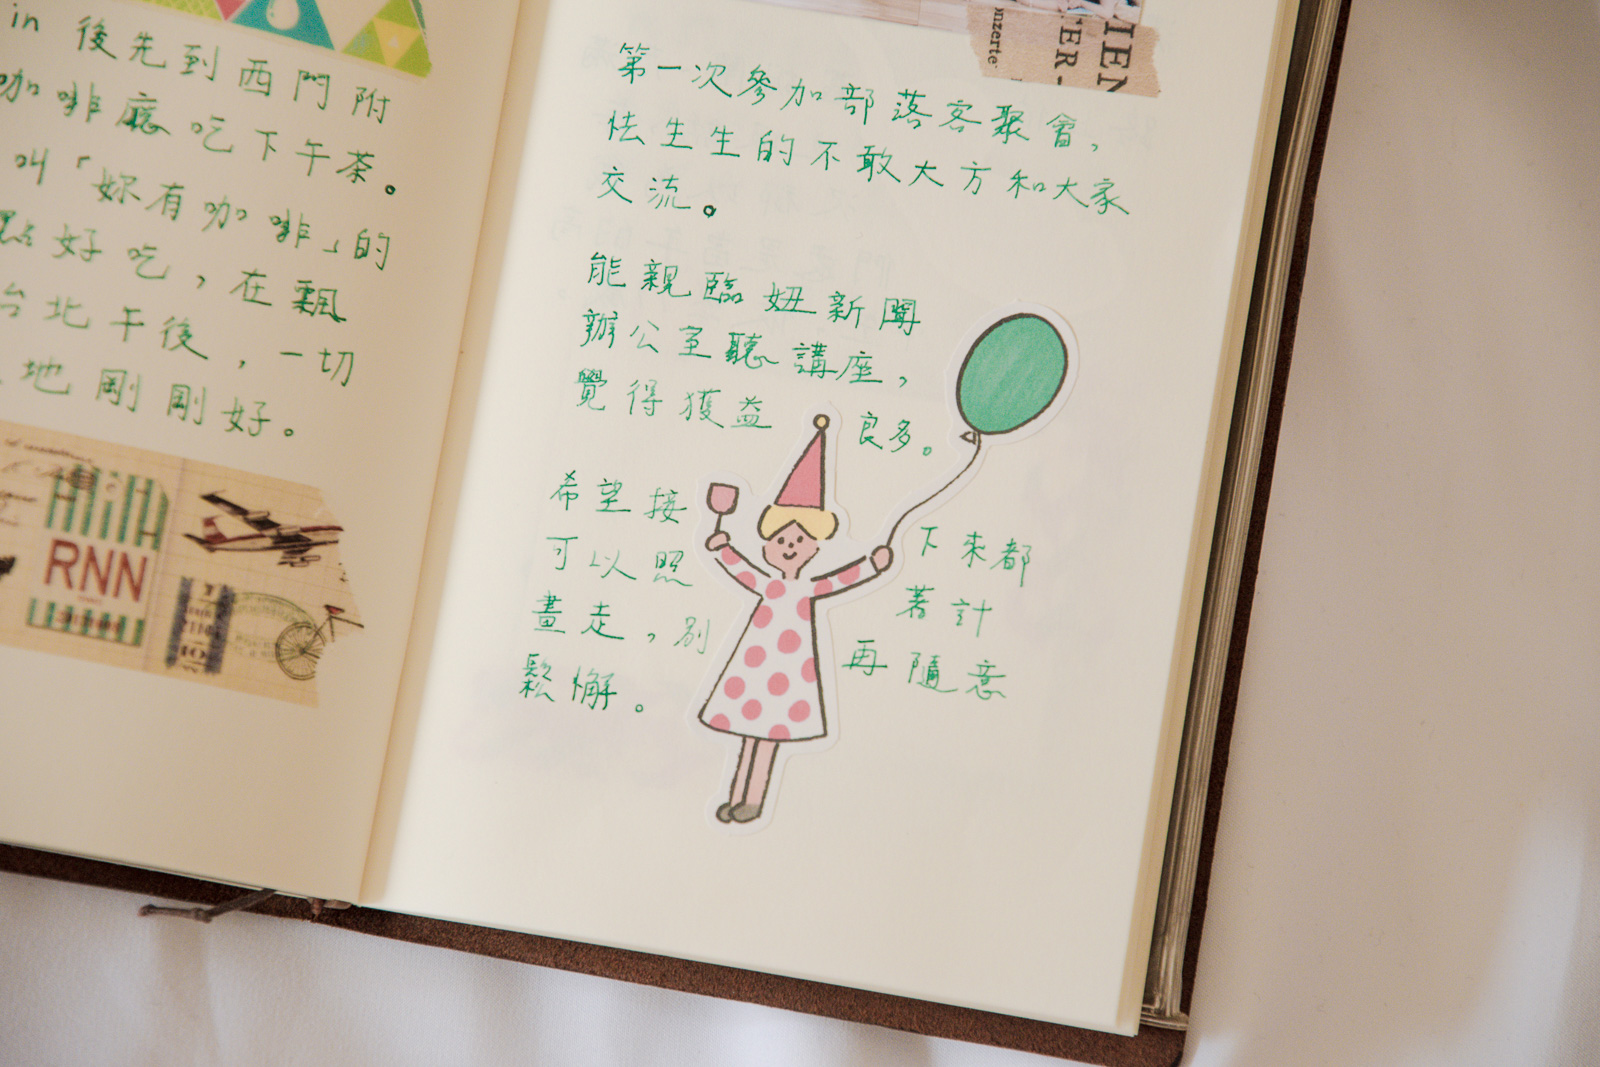 in 後先到西門附
咖啡廳吃下午茶。
叫「妳有咖啡」的
點好吃，在飄
台北午後，一切
地剛剛好。
RNN
IEN
TER-
onzerte
第一次參加部落客聚會，
怯生生的不敢大方和大家
交流。
能親臨妞新聞
辦公室聽講座，
覺得獲益良多。
希望接下來都
可以照著計
畫走，別再隨意
鬆懈。